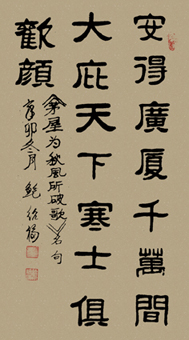 安得廣厦千萬間
大庇天下寒士俱
歡顔
茅屋为秋風所破歌名句
辛卯冬月鮑